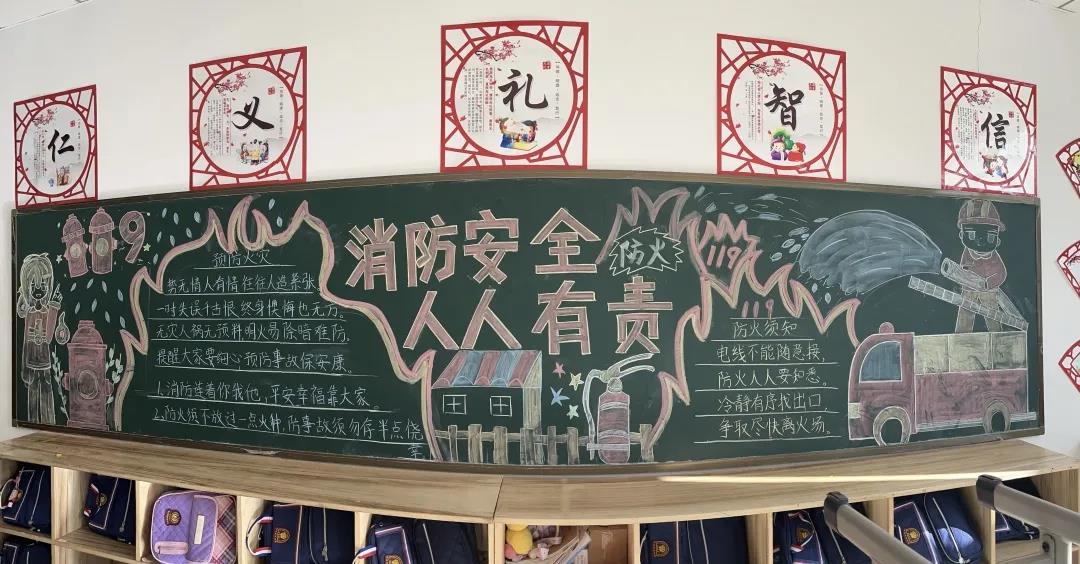 仁
义
礼
智
信
9
消防安全
人人有责
防火
预防火灾
势无情人有情往往人造紧张
一时失误千古恨,终身懊悔也无方。
无灾人祸无预料,明火易除暗难防。
提醒大家要细心,预防事故保安康。
1.消防连着你我他,平安幸福靠大家。
2.防火须不放过一点火种,防事故须勿存半点侥
幸
119
119
防火须知
电线不能随意接,
防火人人要知悉,
冷静有序找出口,
争取尽快离火场。